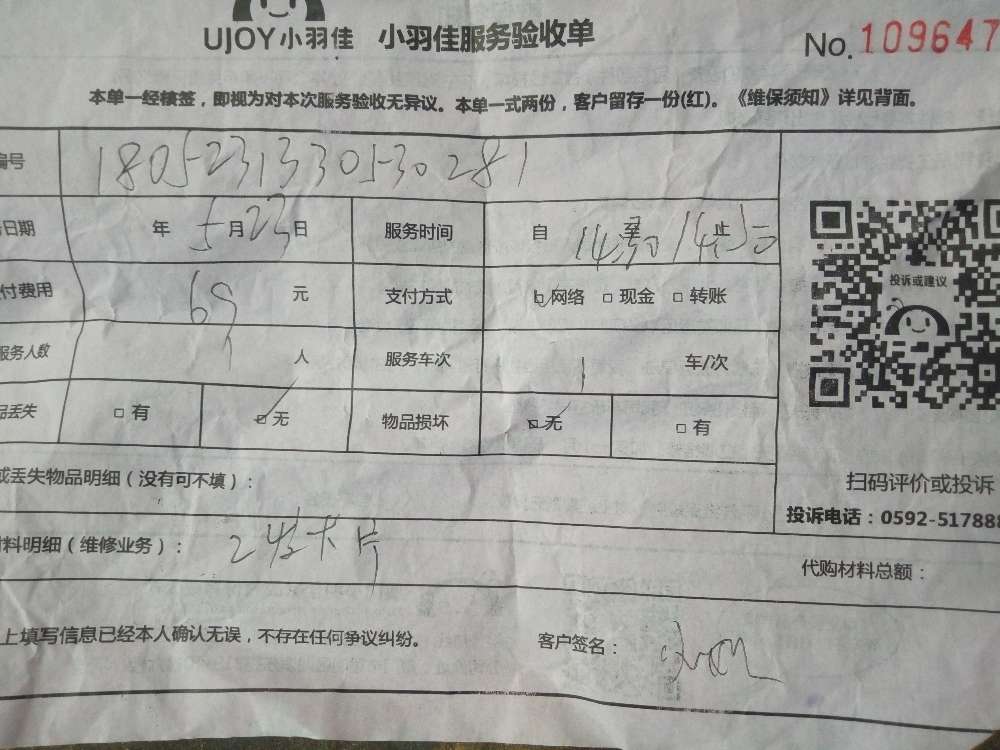 UJOY小羽佳 小羽佳服务验收单
No.109647
本单一经核签，即视为对本次服务验收无异议。本单一式两份，客户留存一份(红)。《维保须知》详见背面。
编号 1805231330530281
日期 年 5月23日 服务时间 自 至 止
付费用 69 元 支付方式 ☑网络 □现金 □转账
服务人数 1 人 服务车次 1 车/次
品丢失 □有 ☑无 物品损坏 ☑无 □有
投诉或建议
或丢失物品明细（没有可不填）：
扫码评价或投诉
投诉电话：0592-517888
材料明细（维修业务）： 卡片
代购材料总额：
上填写信息已经本人确认无误，不存在任何争议纠纷。 客户签名：